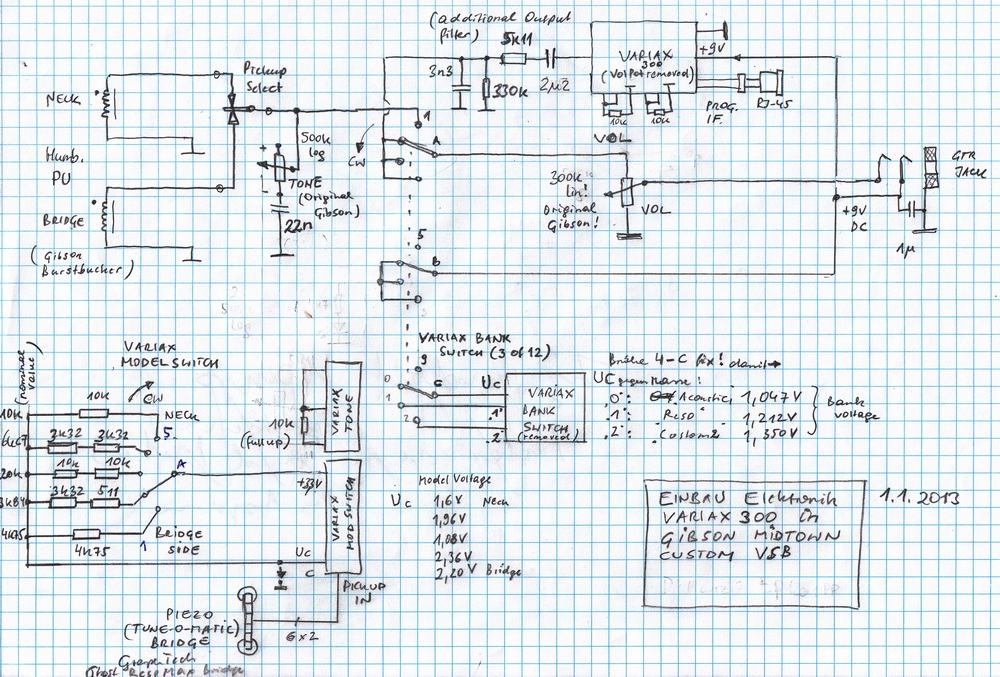 (additional Output
filter)
5k11
3n3
330k
2µ2
VARIAX
300
(Volpot removed)
+9V
10k
10k
VOL
PROG.
IF.
RJ-45
NECK
Pickup
Select
Humb.
PU
500k
log
+
-
TONE
(Original
Gibson)
22n
BRIDGE
(Gibson
Burstbucker)
1
A
CW
300k
lin!
Original
Gibson!
VOL
GTR
JACK
+9V
DC
1µ
5
B
VARIAX BANK
SWITCH (3 of 12)
9
0
1
2
C
Uc
"1"
"2"
VARIAX
BANK
SWITCH
(removed)
Brücke 4-C fix! damit →
UC gegen Masse:
"0": Acoustic 1,047V
"1": Reso" 1,212V
"2": "Custom2" 1,350V
Bank
voltage
(nominal
value)
VARIAX
MODEL SWITCH
CW
10k
10k
NECK
5
6k67
3k32
3k32
20k
10k
10k
A
3k84
3k32
511
4k75
4k75
1
Bridge
SIDE
10k
(full up)
VARIAX
TONE
+3,3V
VARIAX
MOD SWITCH
Uc
C
PICKUP
IN
Model Voltage
Uc 1,6V Neck
1,96V
1,08V
2,36V
2,20V Bridge
EINBAU Elektronik
VARIAX 300 in
GIBSON MIDTOWN
CUSTOM VSB
1.1.2013
PIEZO
(TUNE-O-MATIC)
BRIDGE
GraphTech
Ghost ResoMax Bridge
6x2